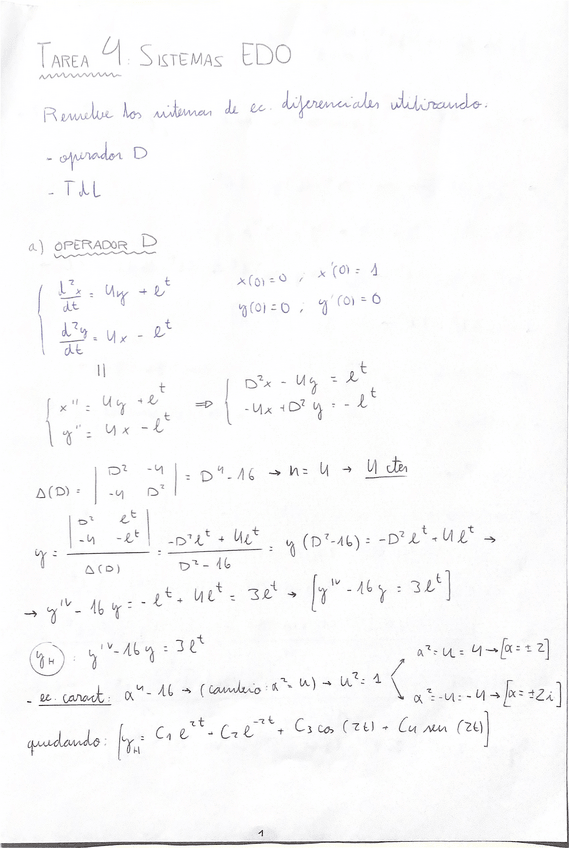 TAREA 4: SISTEMAS EDO
Resuelve los sistemas de ec. diferenciales utilizando.
- operador D
- TdL
a) OPERADOR D
d²x/dt = 4y + e^t    x(0)=0 ; x'(0)=1
d²y/dt = 4x - e^t    y(0)=0 ; y'(0)=0
||
{ x'' = 4y + e^t ⇒ { D²x - 4y = e^t
y'' = 4x - e^t    -4x + D²y = -e^t
Δ(D) = | D² -4 ; -4 D² | = D⁴-16 → n=4 → 4 ctes
y = | D² e^t ; -4 -e^t | / Δ(D) = (-D²e^t + 4e^t) / (D²-16) = y(D²-16) = -D²e^t + 4e^t →
→ y^IV - 16y = -e^t + 4e^t = 3e^t → [y^IV - 16y = 3e^t]
y_H : y^IV - 16y = 3e^t
- ec. caract: α⁴-16 → (cambio: α²=u) → u²=1
α²=u=4 → [α=±2]
α²=-u=-4 → [α=±2i]
quedando: [y_H = C1 e^2t + C2 e^-2t + C3 cos (2t) + C4 sen (2t)]
1